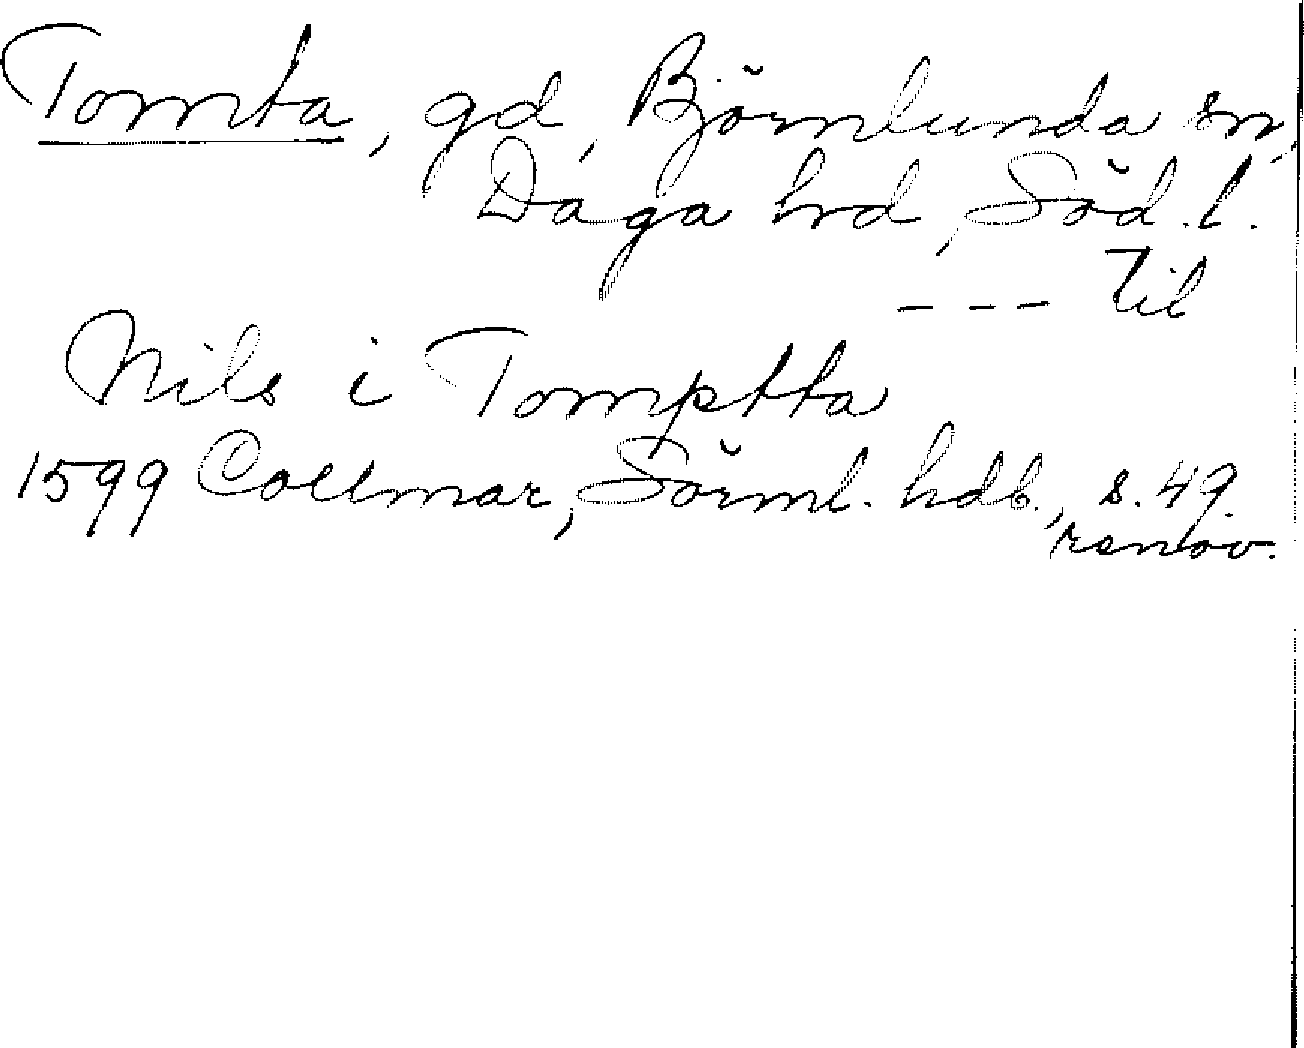 Tomta, gd, Björnlunda sn,
Daga hrd, Söd. l.
--- Til
Nils i Tomptta
1599 Collmar, Sörml. hdb., s. 49.
renov.